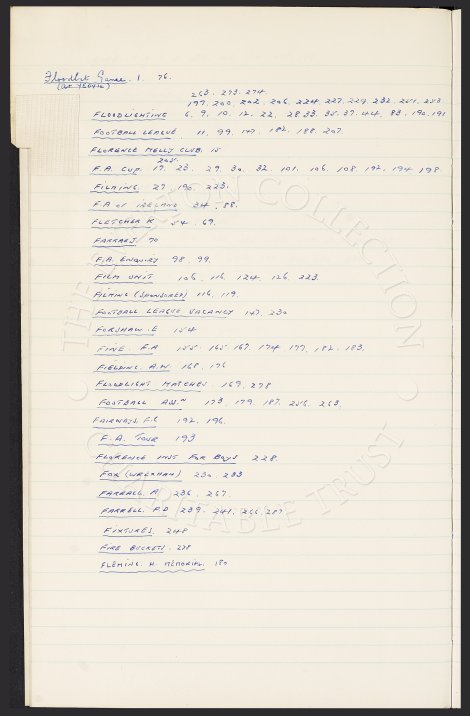 Floodlit Game. 1. 76.
(at YEOVIL)
263. 273. 274.
197. 200. 202. 206. 224. 227. 229. 232. 251. 253
FLOODLIGHTING 6. 9. 10. 12. 22. 28. 33. 35. 37. 44. 83. 190. 191
FOOTBALL LEAGUE 11. 99. 147. 182. 188. 207.
FLORENCE MELLY CLUB. 15
205.
F.A. CUP. 17. 23. 29. 30. 32. 101. 106. 108. 192. 194 198
FILMING. 27. 190. 223.
F.A OF IRELAND 34. 88.
FLETCHER K 54. 69.
FARRARS. 70
F.A. ENQUIRY 98. 99.
FILM UNIT 106. 116. 124. 126. 223.
FILMING (SPONSORED) 116. 119.
FOOTBALL LEAGUE VACANCY 147. 230
FORSHAW. E 154
FINE. F.A 155. 165. 167. 174 177. 182. 183.
FIELDING. A.W. 168. 176
FLOODLIGHT MATCHES. 169. 278
FOOTBALL ASSN 173. 179. 187. 256. 263.
FAIRWAYS. F.C 192. 196.
F.A. TOUR 193
FLORENCE INST FOR BOYS 228.
FOX (WREXHAM) 230. 233
FARRALL. A 236. 267
FARRELL. P.D 239. 241. 266. 287.
FIXTURES. 248
FIRE BUCKETS. 278
FLEMING. H. MEMORIAL. 180
THE COLLECTION
CHARITABLE TRUST